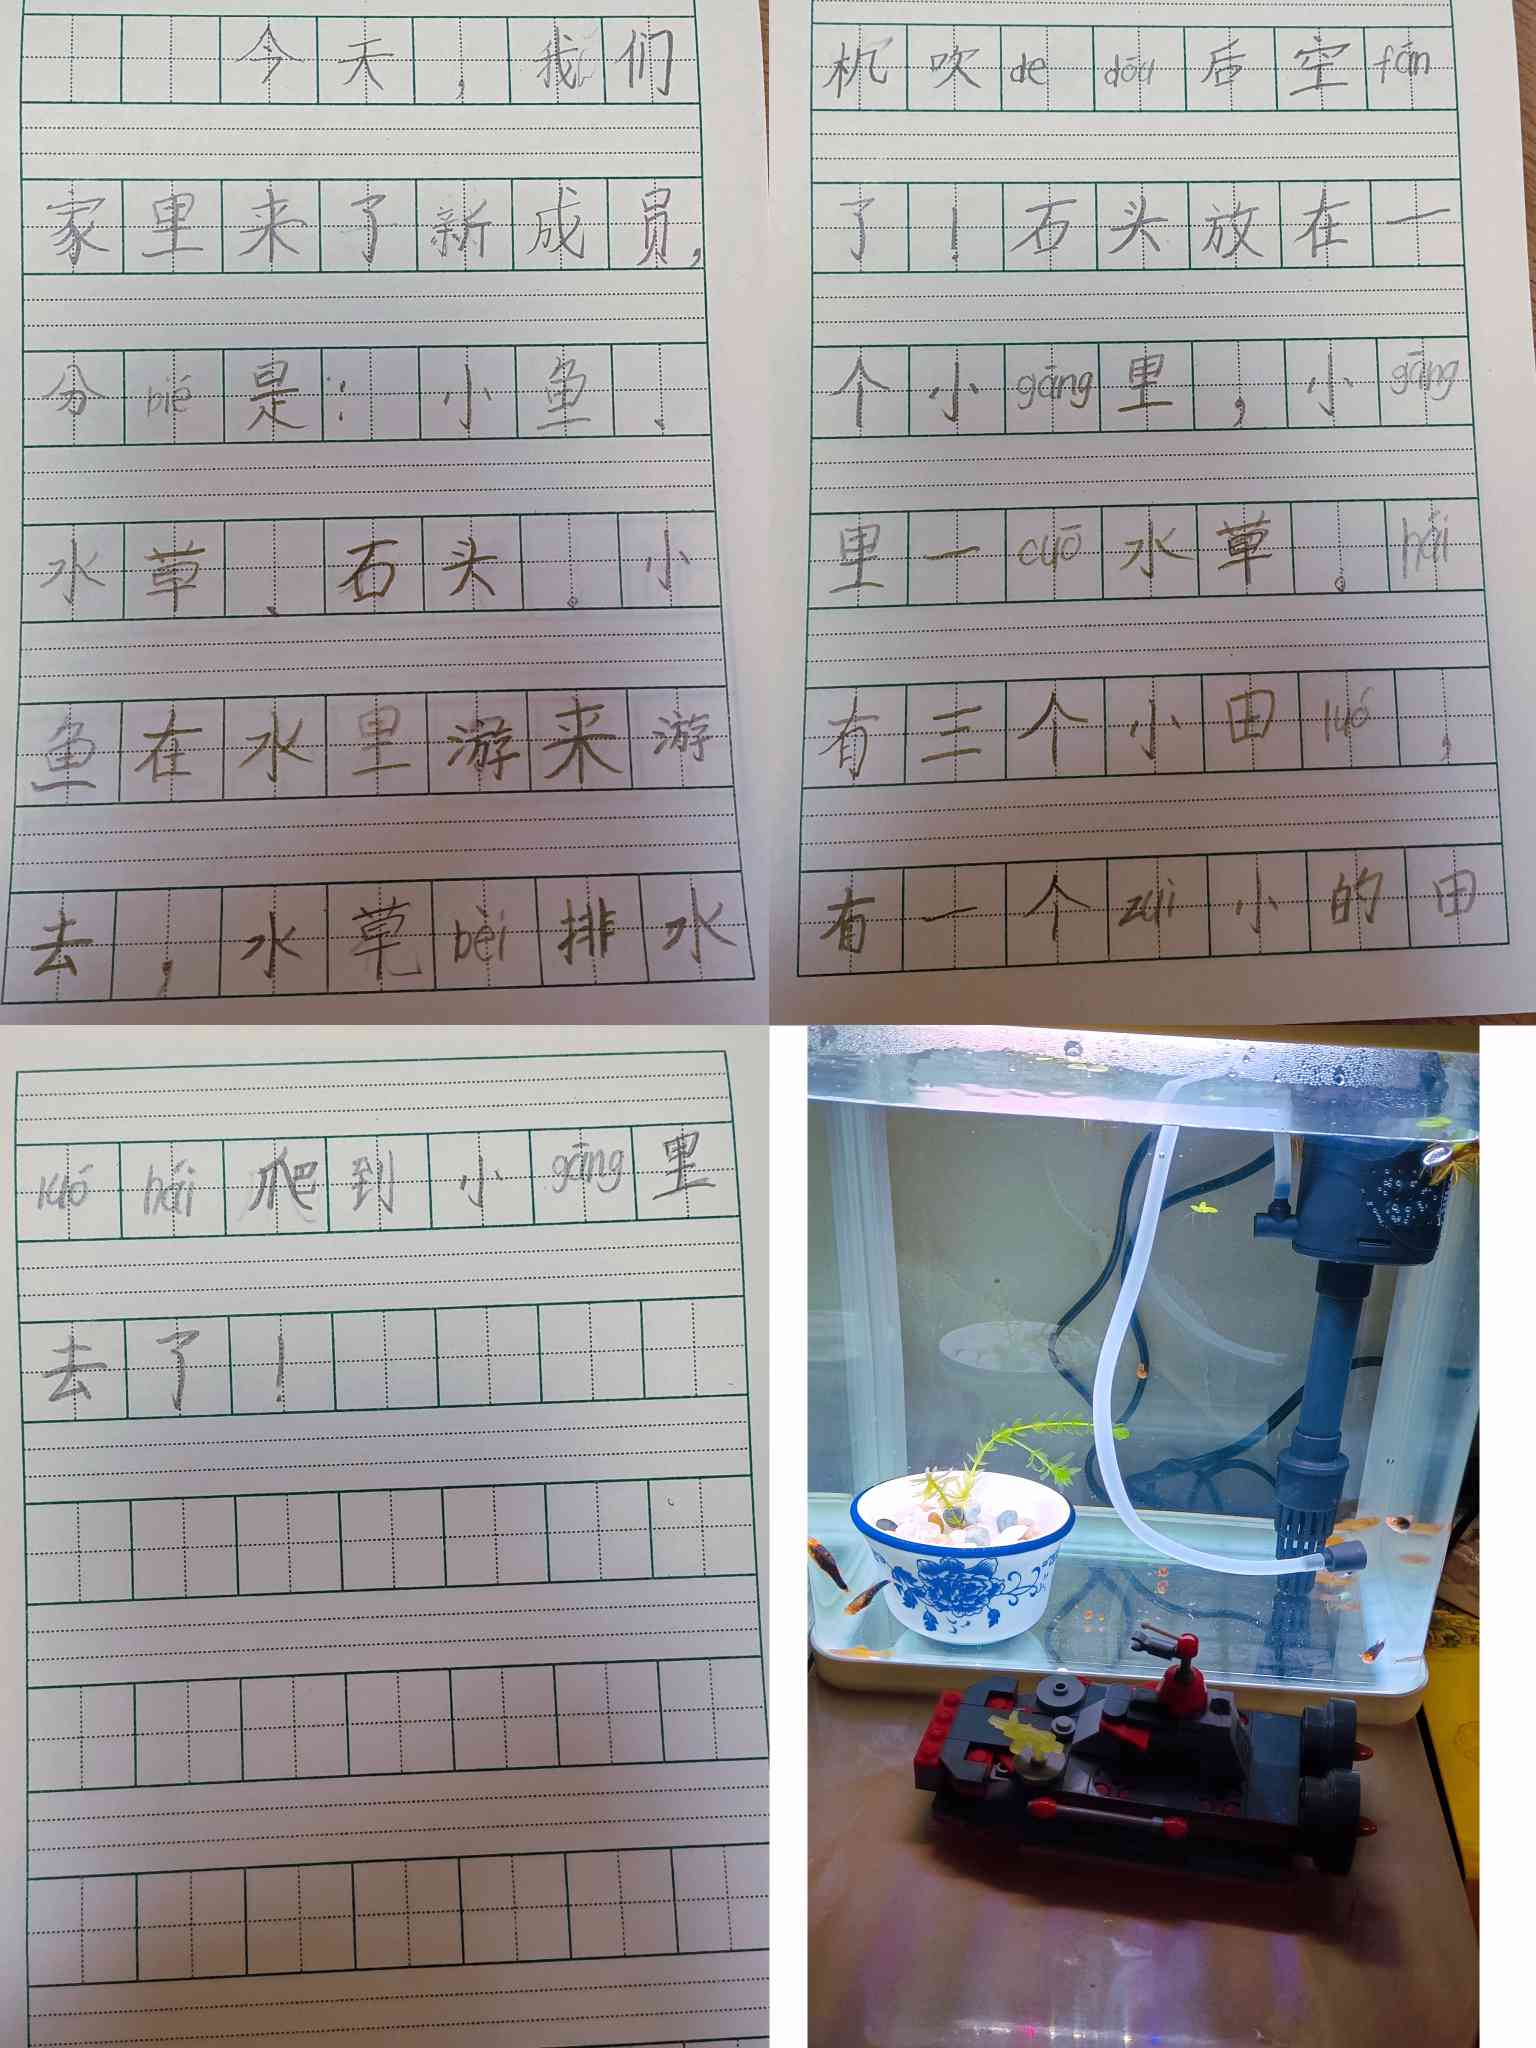 今天，我们
家里来了新成员，
分bié是：小鱼、
水草、石头。小
鱼在水里游来游
去，水草bèi排水
机吹de dōu后空fān
了！石头放在一
个小gāng里，小gāng
里一cuō水草。hái
有三个小田luó，
有一个zuì小的田
luó hái爬到小gāng里
去了！